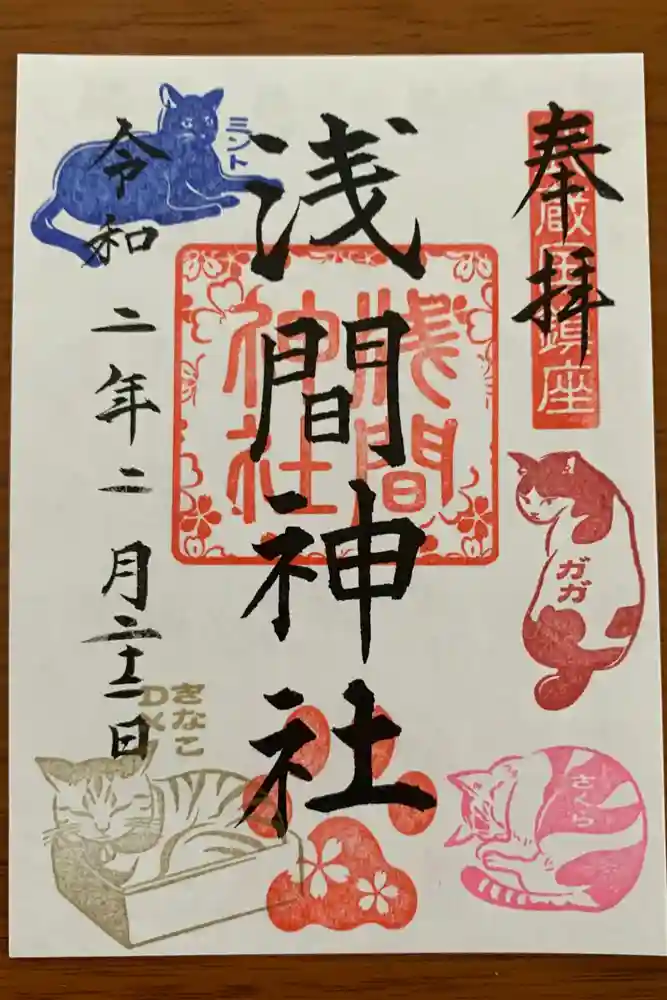 奉拝
鎮座
浅間神社
浅間
神社
令和二年二月二十二日
ミント
ガガ
さくら
きなこ
DX